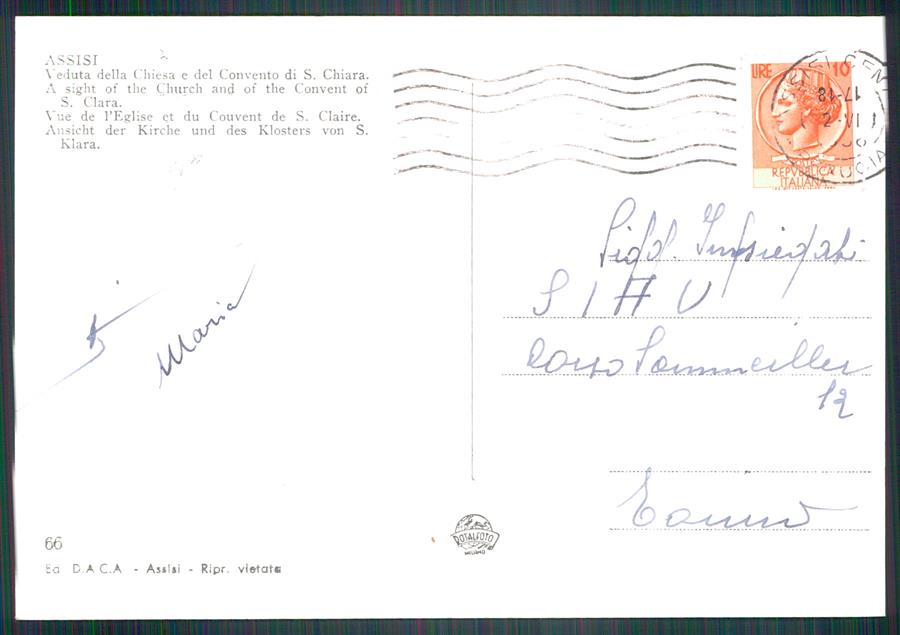 ASSISI
Veduta della Chiesa e del Convento di S. Chiara.
A sight of the Church and of the Convent of
S. Clara.
Vue de l'Eglise et du Couvent de S. Claire.
Ansicht der Kirche und des Klosters von S.
Klara.
LIRE 10
REPVBBLICA
ITALIANA
17-18
2-VI
Maria
Impiegati
Corso Sommeiller
12
Torino
66
ROTALFOTO
MILANO
Ed D.A.C.A - Assisi - Ripr. vietata